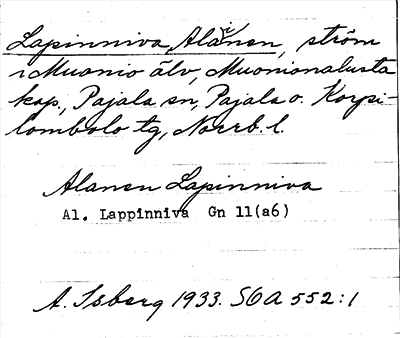 Lapinniva, Alanen, ström
i Muonio älv, Muonionalusta
kap., Pajala sn, Pajala o. Korpi-
lombolo tg, Norrb. l.
Alanen Lapinniva
Al. Lappinniva Gn 11(a6)
A. Isberg 1933. SOA 552:1